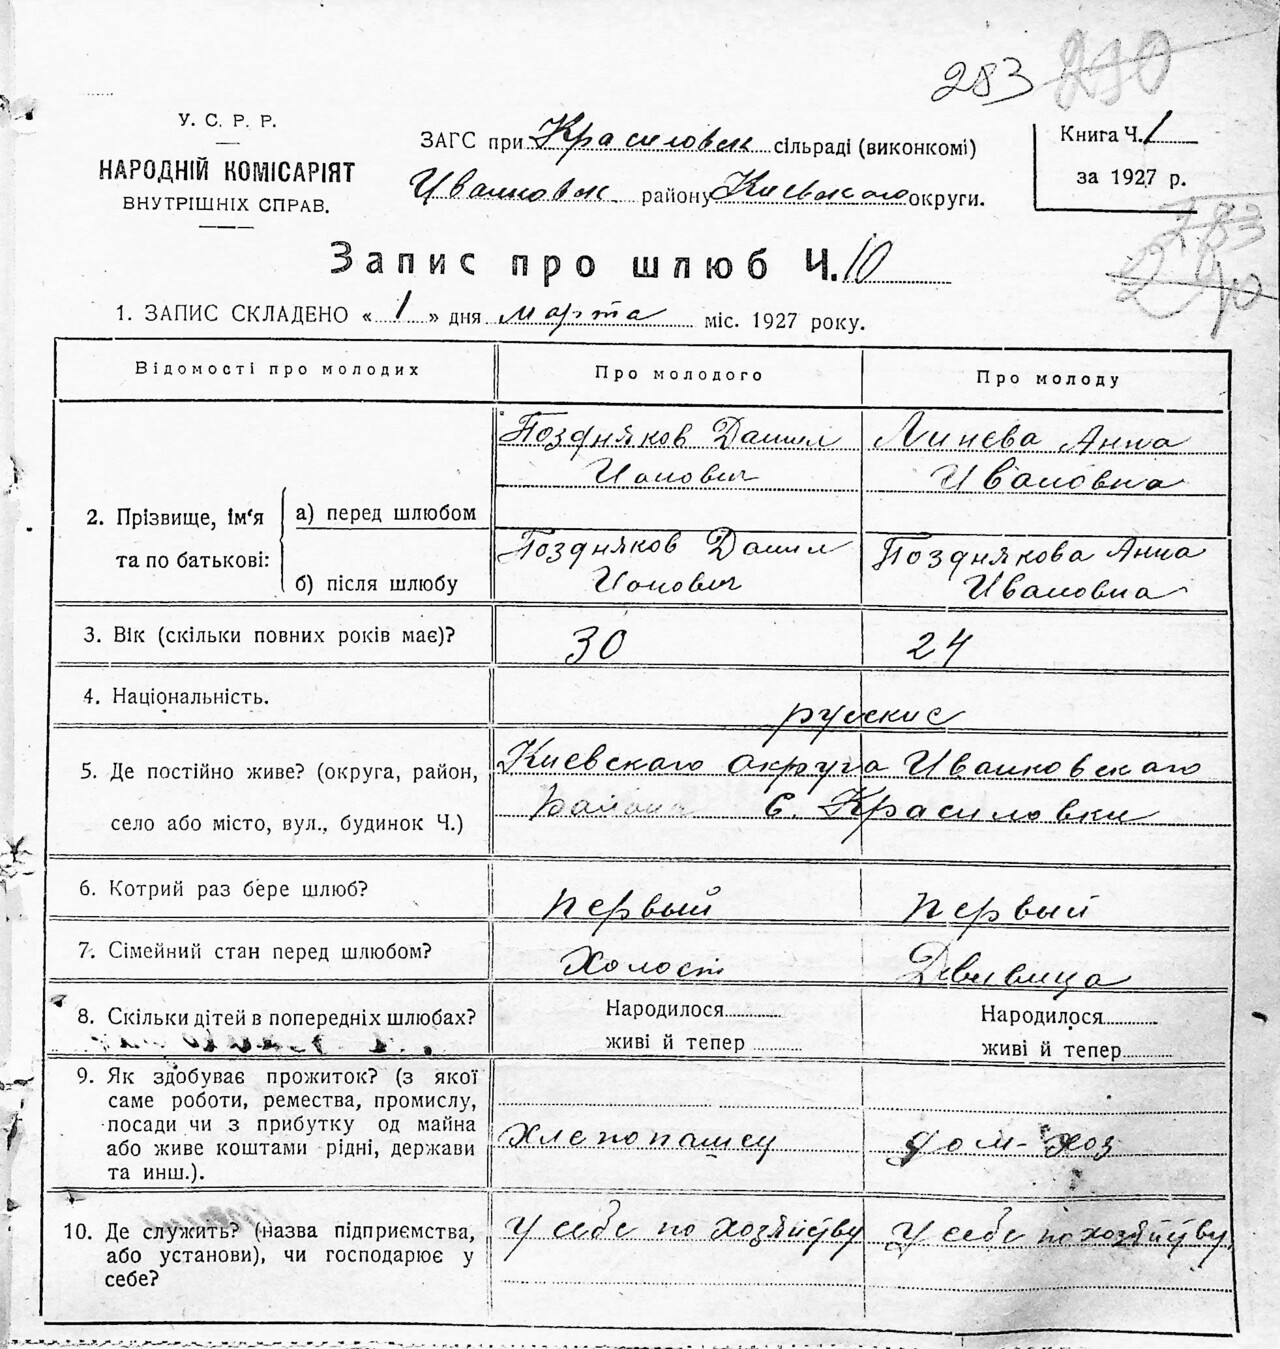 283 210
У. С. Р. Р.
НАРОДНІЙ КОМІСАРІЯТ
ВНУТРІШНІХ СПРАВ.
ЗАГС при Красиловск сільраді (виконкомі)
Иванковск. району Киевского округи.
Книга Ч. 1
за 1927 р.
283
290
Запис про шлюб Ч. 10
1. ЗАПИС СКЛАДЕНО « 1 » дня марта міс. 1927 року.
Відомості про молодих
Про молодого
Про молоду
2. Прізвище, ім'я
та по батькові:
а) перед шлюбом
Поздняков Данил
Ионович
Линєва Анна
Ивановна
б) після шлюбу
Поздняков Данил
Ионович
Позднякова Анна
Ивановна
3. Вік (скільки повних років має)?
30
24
4. Національність.
русские
5. Де постійно живе? (округа, район,
село або місто, вул., будинок Ч.)
Києвскаго округа Иванковскаго
Района с. Красиловки
6. Котрий раз бере шлюб?
первый
первый
7. Сімейний стан перед шлюбом?
Холост
Девица
8. Скільки дітей в попередніх шлюбах?
Народилося
живі й тепер
Народилося
живі й тепер
9. Як здобуває прожиток? (з якої
саме роботи, ремества, промислу,
посади чи з прибутку од майна
або живе коштами рідні, держави
та инш.).
дом-хоз
10. Де служить? (назва підприємства,
або установи), чи господарює у
себе?
У себе по хозяйству
У себе по хозяйству